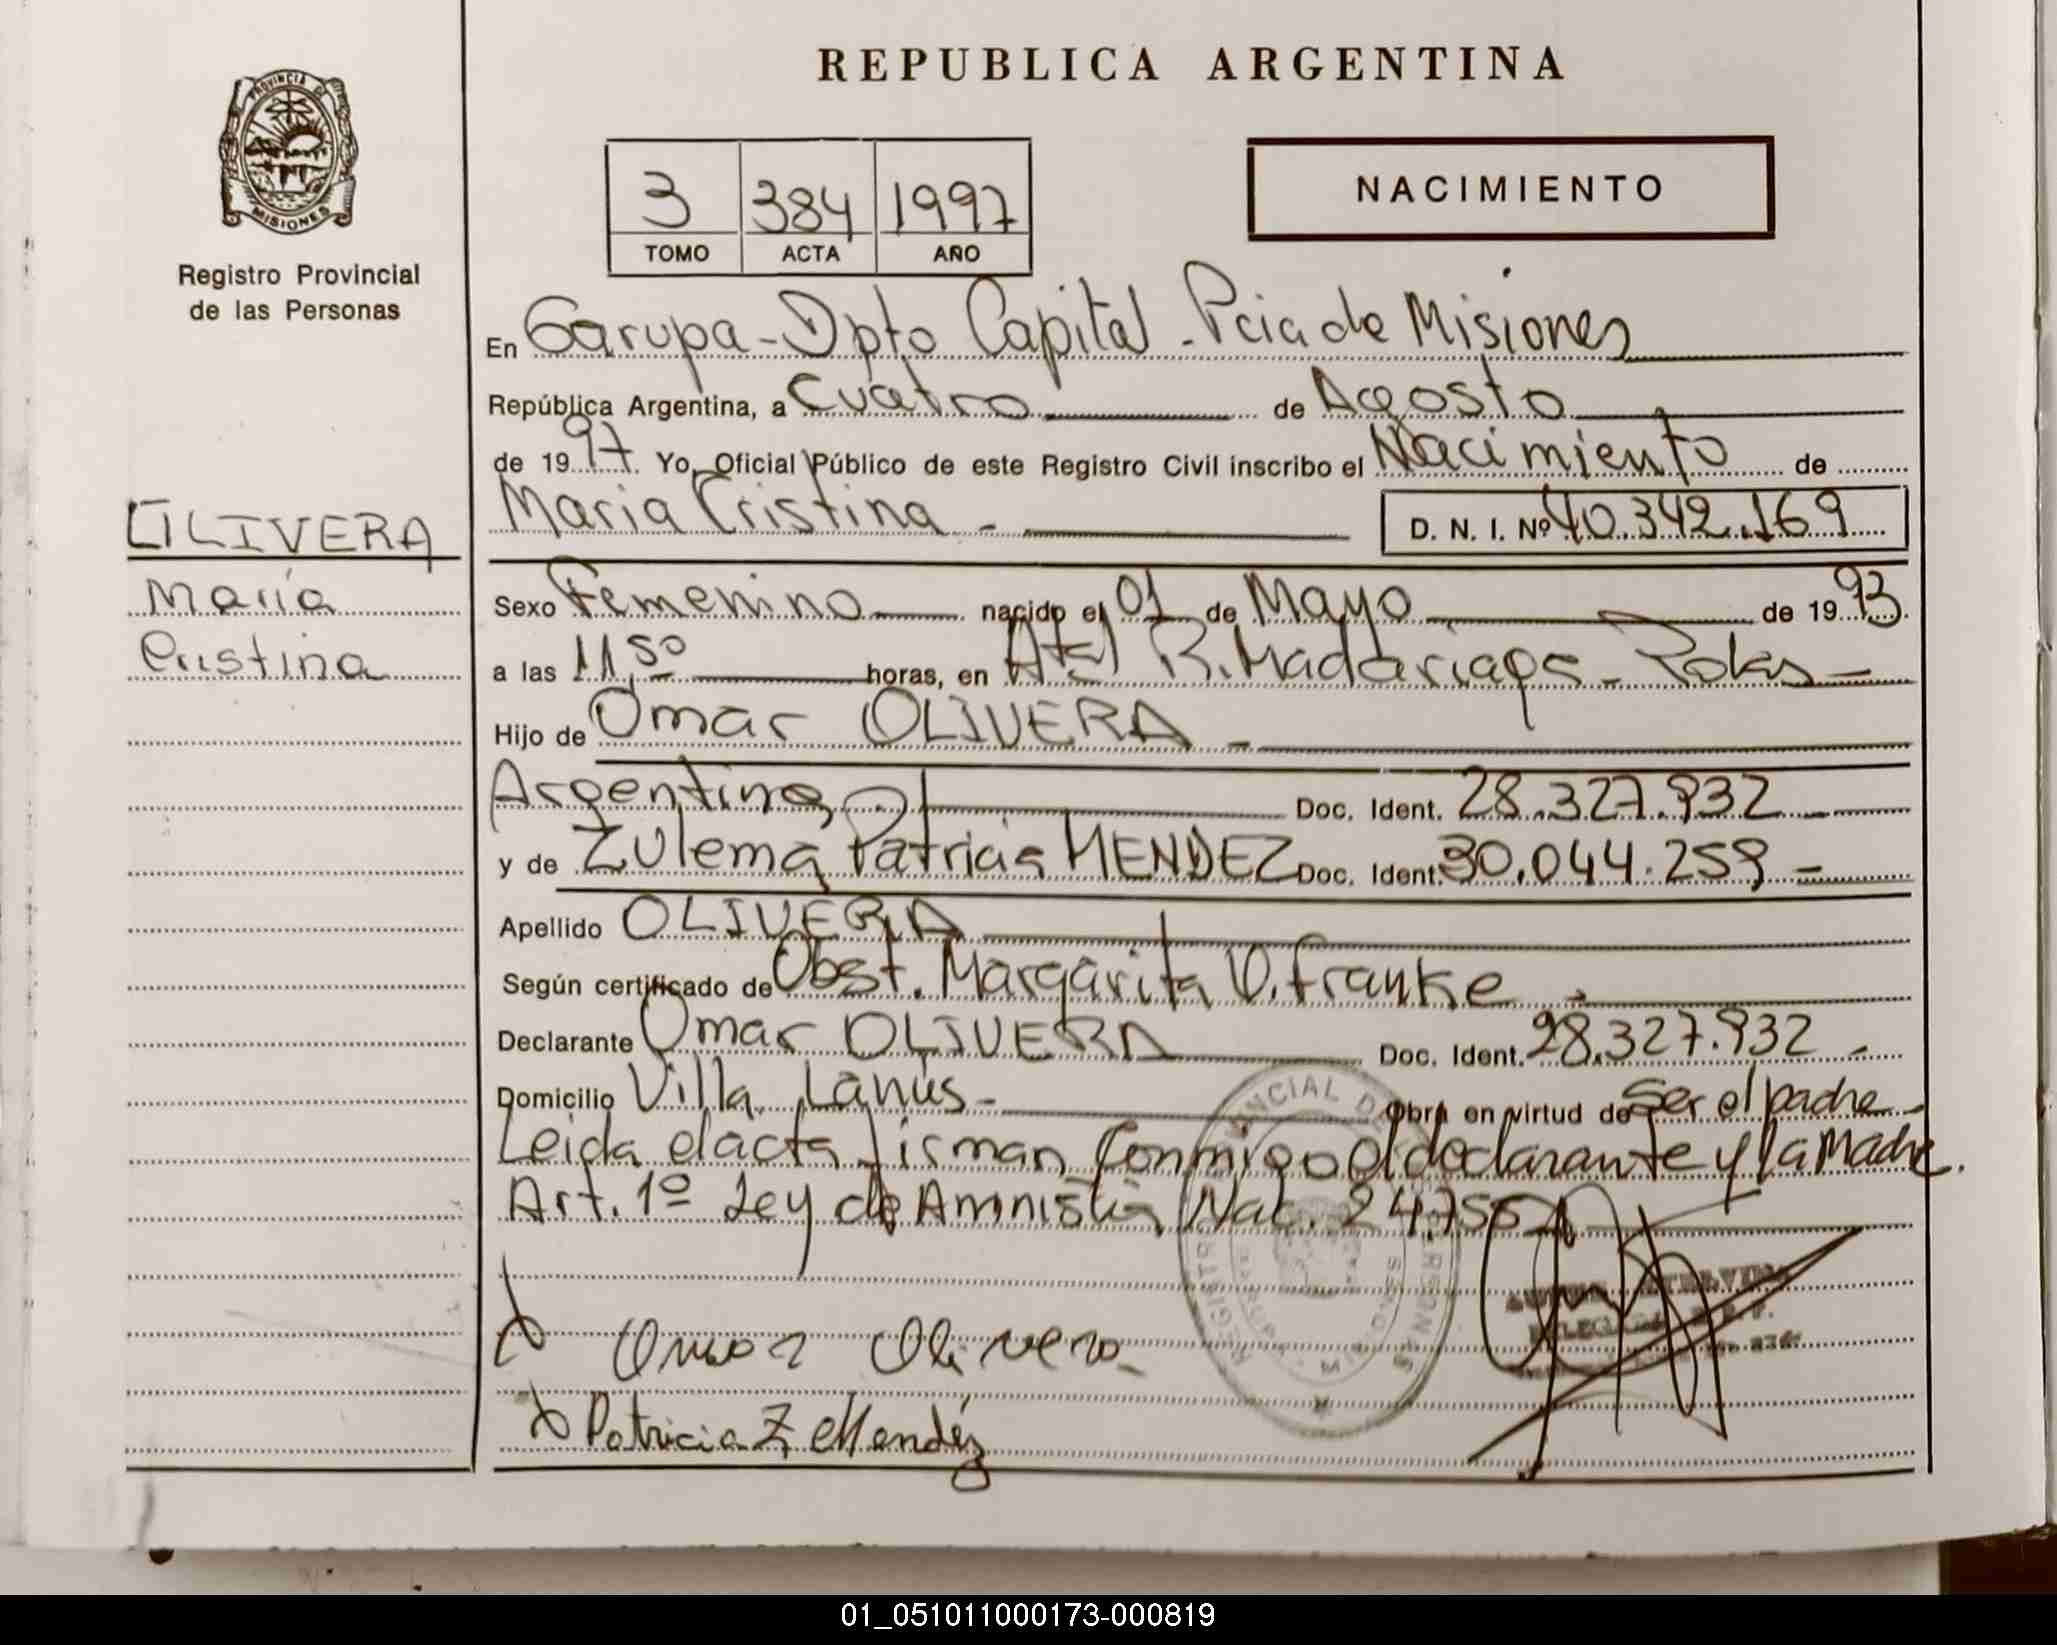 REPUBLICA ARGENTINA
PROVINCIA DE
MISIONES
Registro Provincial
de las Personas
3 384 1997
TOMO ACTA AÑO
NACIMIENTO
En Garupa - Dpto Capital - Pcia de Misiones
República Argentina, a Cuatro de Agosto
de 1997. Yo, Oficial Público de este Registro Civil inscribo el Nacimiento de
Maria Cristina - D. N. I. Nº 40.342.169
OLIVERA
María
Cristina
Sexo Femenino nacido el 01 de Mayo de 1993.
a las 11,50 horas, en R. Madariaga - Pdas -
Hijo de Omar OLIVERA -
Argentino Doc. Ident. 28.327.932
y de Zulema Patricia MENDEZ Doc. Ident. 30.044.259 -
Apellido OLIVERA
Según certificado de Obst. Margarita V. Franke -
Declarante Omar OLIVERA Doc. Ident. 28.327.932 -
Domicilio Villa Lanús - Obra en virtud de Ser el padre -
Leida el acta firman conmigo el declarante y la Madre.
Art. 1º Ley de Amnistía Nac. 24.755
Omar Olivera
Patricia Z Mendéz
01_051011000173-000819